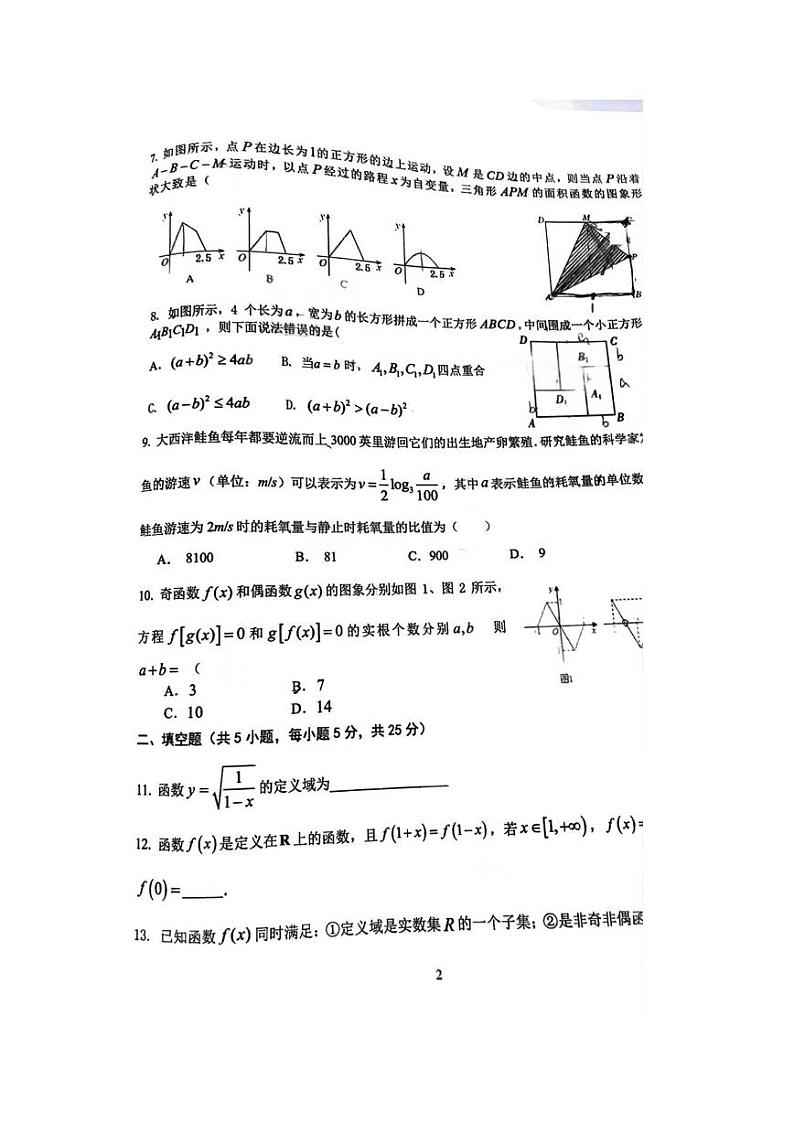 7. 如图所示，点 P 在边长为1的正方形的边上运动，设 M 是 CD 边的中点，则当点 P 沿着
A-B-C-M 运动时，以点 P 经过的路程 x 为自变量，三角形 APM 的面积函数的图象形
状大致是（
y y y y
O 2.5 x O 2.5 x O 2.5 x O 2.5 x
A B C D
D M C
P
A 1 B
8. 如图所示，4 个长为 a，宽为 b 的长方形拼成一个正方形 ABCD，中间围成一个小正方形
A₁B₁C₁D₁，则下面说法错误的是(
A. (a+b)² ≥ 4ab B. 当 a = b 时，A₁,B₁,C₁,D₁ 四点重合
C. (a-b)² ≤ 4ab D. (a+b)² > (a-b)²
D a C
B₁ b
a
D₁ A₁
b
A b B
9. 大西洋鲑鱼每年都要逆流而上，3000 英里游回它们的出生地产卵繁殖．研究鲑鱼的科学家
鱼的游速 v（单位：m/s）可以表示为 v = 1/2 log₃ a/100，其中 a 表示鲑鱼的耗氧量的单位数
鲑鱼游速为 2m/s 时的耗氧量与静止时耗氧量的比值为（ ）
A. 8100 B. 81 C. 900 D. 9
10. 奇函数 f(x) 和偶函数 g(x) 的图象分别如图 1、图 2 所示，
方程 f[g(x)]=0 和 g[f(x)]=0 的实根个数分别 a,b 则
a+b= （
A. 3 B. 7
C. 10 D. 14
y
O x
图1
二、填空题（共 5 小题，每小题 5 分，共 25 分）
11. 函数 y = √(1/(1-x)) 的定义域为
12. 函数 f(x) 是定义在 R 上的函数，且 f(1+x)=f(1-x)，若 x∈[1,+∞)，f(x)=
f(0)=____.
13. 已知函数 f(x) 同时满足：①定义域是实数集 R 的一个子集；②是非奇非偶函
2